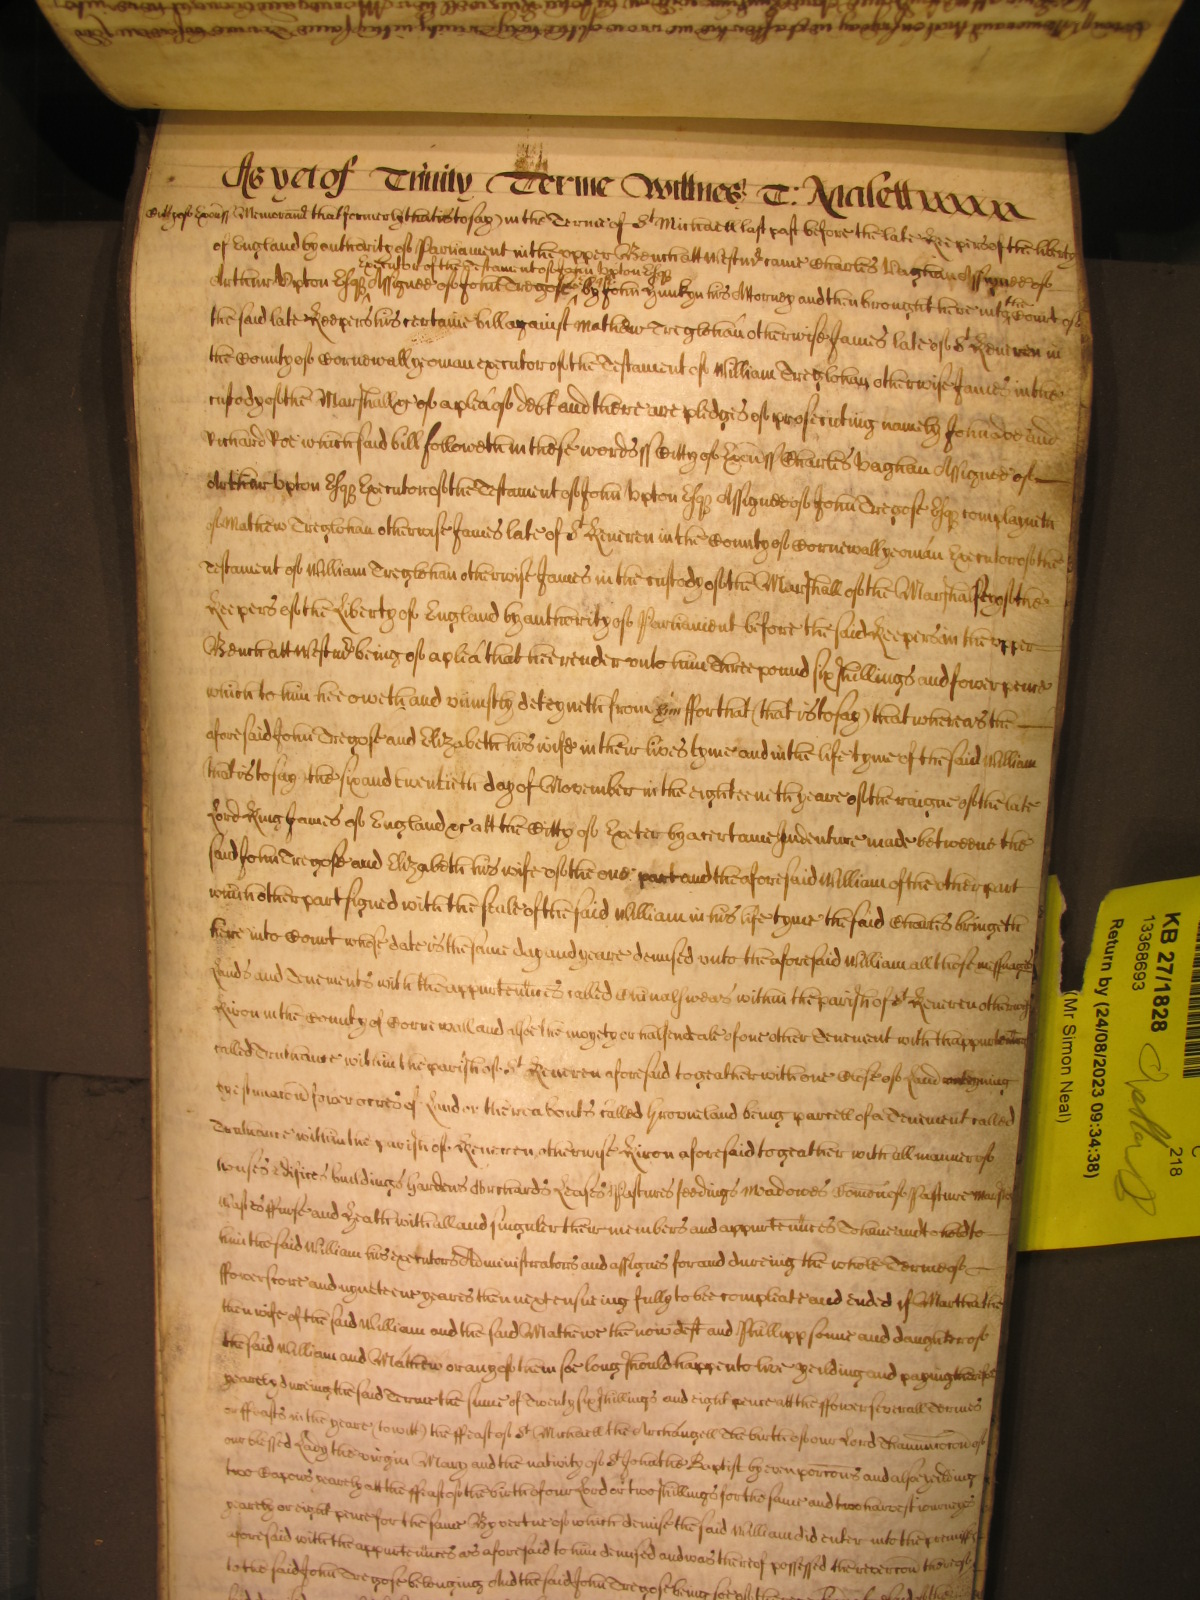 As yet of Trinity Terme Wittnes T: Malett xxxx
Citty of Exon ss Memorand that formerly (that is to say) in the Terme of St Michaell last past before the late Keepers of the liberty
of England by authority of Parliament in the upper Bench att Westmr came Charles Vaghan Assignee of
Executor of the Testament of John Upton Esqr
Arthur Upton Esqr Assignee of John Tregose Esqr by John Hunkyn his Attorney and then brought here into the Court of
the said late Keepers his certaine bill against Mathew Treglohan otherwise James late of St Keveren in
the County of Cornewall yeoman executor of the Testament of William Treglohan otherwise James in the
custody of the Marshall &c of a plea of debt and there are pledges of prosecuting namely John Doe and
Richard Roe which said bill followeth in these words ss Citty of Exon ss Charles Vaghan Assignee of
Arthur Upton Esqr Executor of the Testament of John Upton Esqr Assignee of John Tregose Esqr complayneth
of Mathew Treglohan otherwise James late of St Keveren in the County of Cornewall yeoman Executor of the
Testament of William Treglohan otherwise James in the custody of the Marshall of the Marshalsey of the
Keepers of the Liberty of England by authority of Parliament before the said Keepers in the upper
Bench att Westmr being of a plea that hee render unto him three pound six shillings and fower pence
which to him hee oweth and uniustly deteyneth from him ffor that (that is to say) that whereas the
aforesaid John Tregose and Elizabeth his wife in their lives tyme and in the life tyme of the said William
that is to say the six and twentieth day of November in the eighteeneth yeare of the raigne of the late
Lord King James of England &c att the Citty of Exeter by a certaine Indenture made betweene the
said John Tregose and Elizabeth his wife of the one part and the aforesaid William of the other part
which other part signed with the seale of the said William in his life tyme the said Charles bringeth
here into Court whose date is the same day and yeare demised unto the aforesaid William all those messuages
Lands and Tenements with the appurtennces called within the parish of St Keveren otherwise
Kiron in the County of Cornewall and alsoe the moyety or halfendeale of one other Tenement with thappurtennces
called Trutharne within the parish of St Keveren aforesaid togeather with one Close of Land conteyning
by estimacon fower acres of Land or thereabouts called Groveland being parcell of a Tenement called
Trutharne within the parish of Keveren otherwise Kiron aforesaid togeather with all manner of
houses edifices buildings Gardens Orchards Leases Pastures feedings Meadowes Comon of Pasture Marshes
Wastes ffurse and Heath with all and singuler their members and appurtennces To have and to hold to
him the said William his executors Administrators and assignes for and dureing the whole Terme of
ffowerscore and nyneteene yeares then next ensueing fully to bee compleate and ended if Martha the
then wife of the said William and the said Mathewe the now deft and Phillipp sonne and daughter of
the said William and Mathew or any of them soe long should happen to live yeilding and paying therefore
yearely dureing the said Terme the summe of Twenty six shillings and eight pence att the ffower severall Termes
or ffeasts in the yeare (to witt) the ffeast of St Michaell the Archangell the birth of our Lord Thannuncacon of
our blessed Lady the virgin Mary and the nativity of St John the Baptist by even porcons and alsoe yeilding
two Capons yearely att the ffeast of the birth of our Lord or two shillings for the same and two harvest iourneys
yearely or eight pence for the same By vertue of which demise the said William did enter into the premisses
aforesaid with the appurtennces as aforesaid to him demised and was thereof possessed the revercon thereof
to the said John Tregose belonging And the said John Tregose being
KB 27/1828
13368693
218
Return by (24/08/2023 09:34:38)
(Mr Simon Neal)